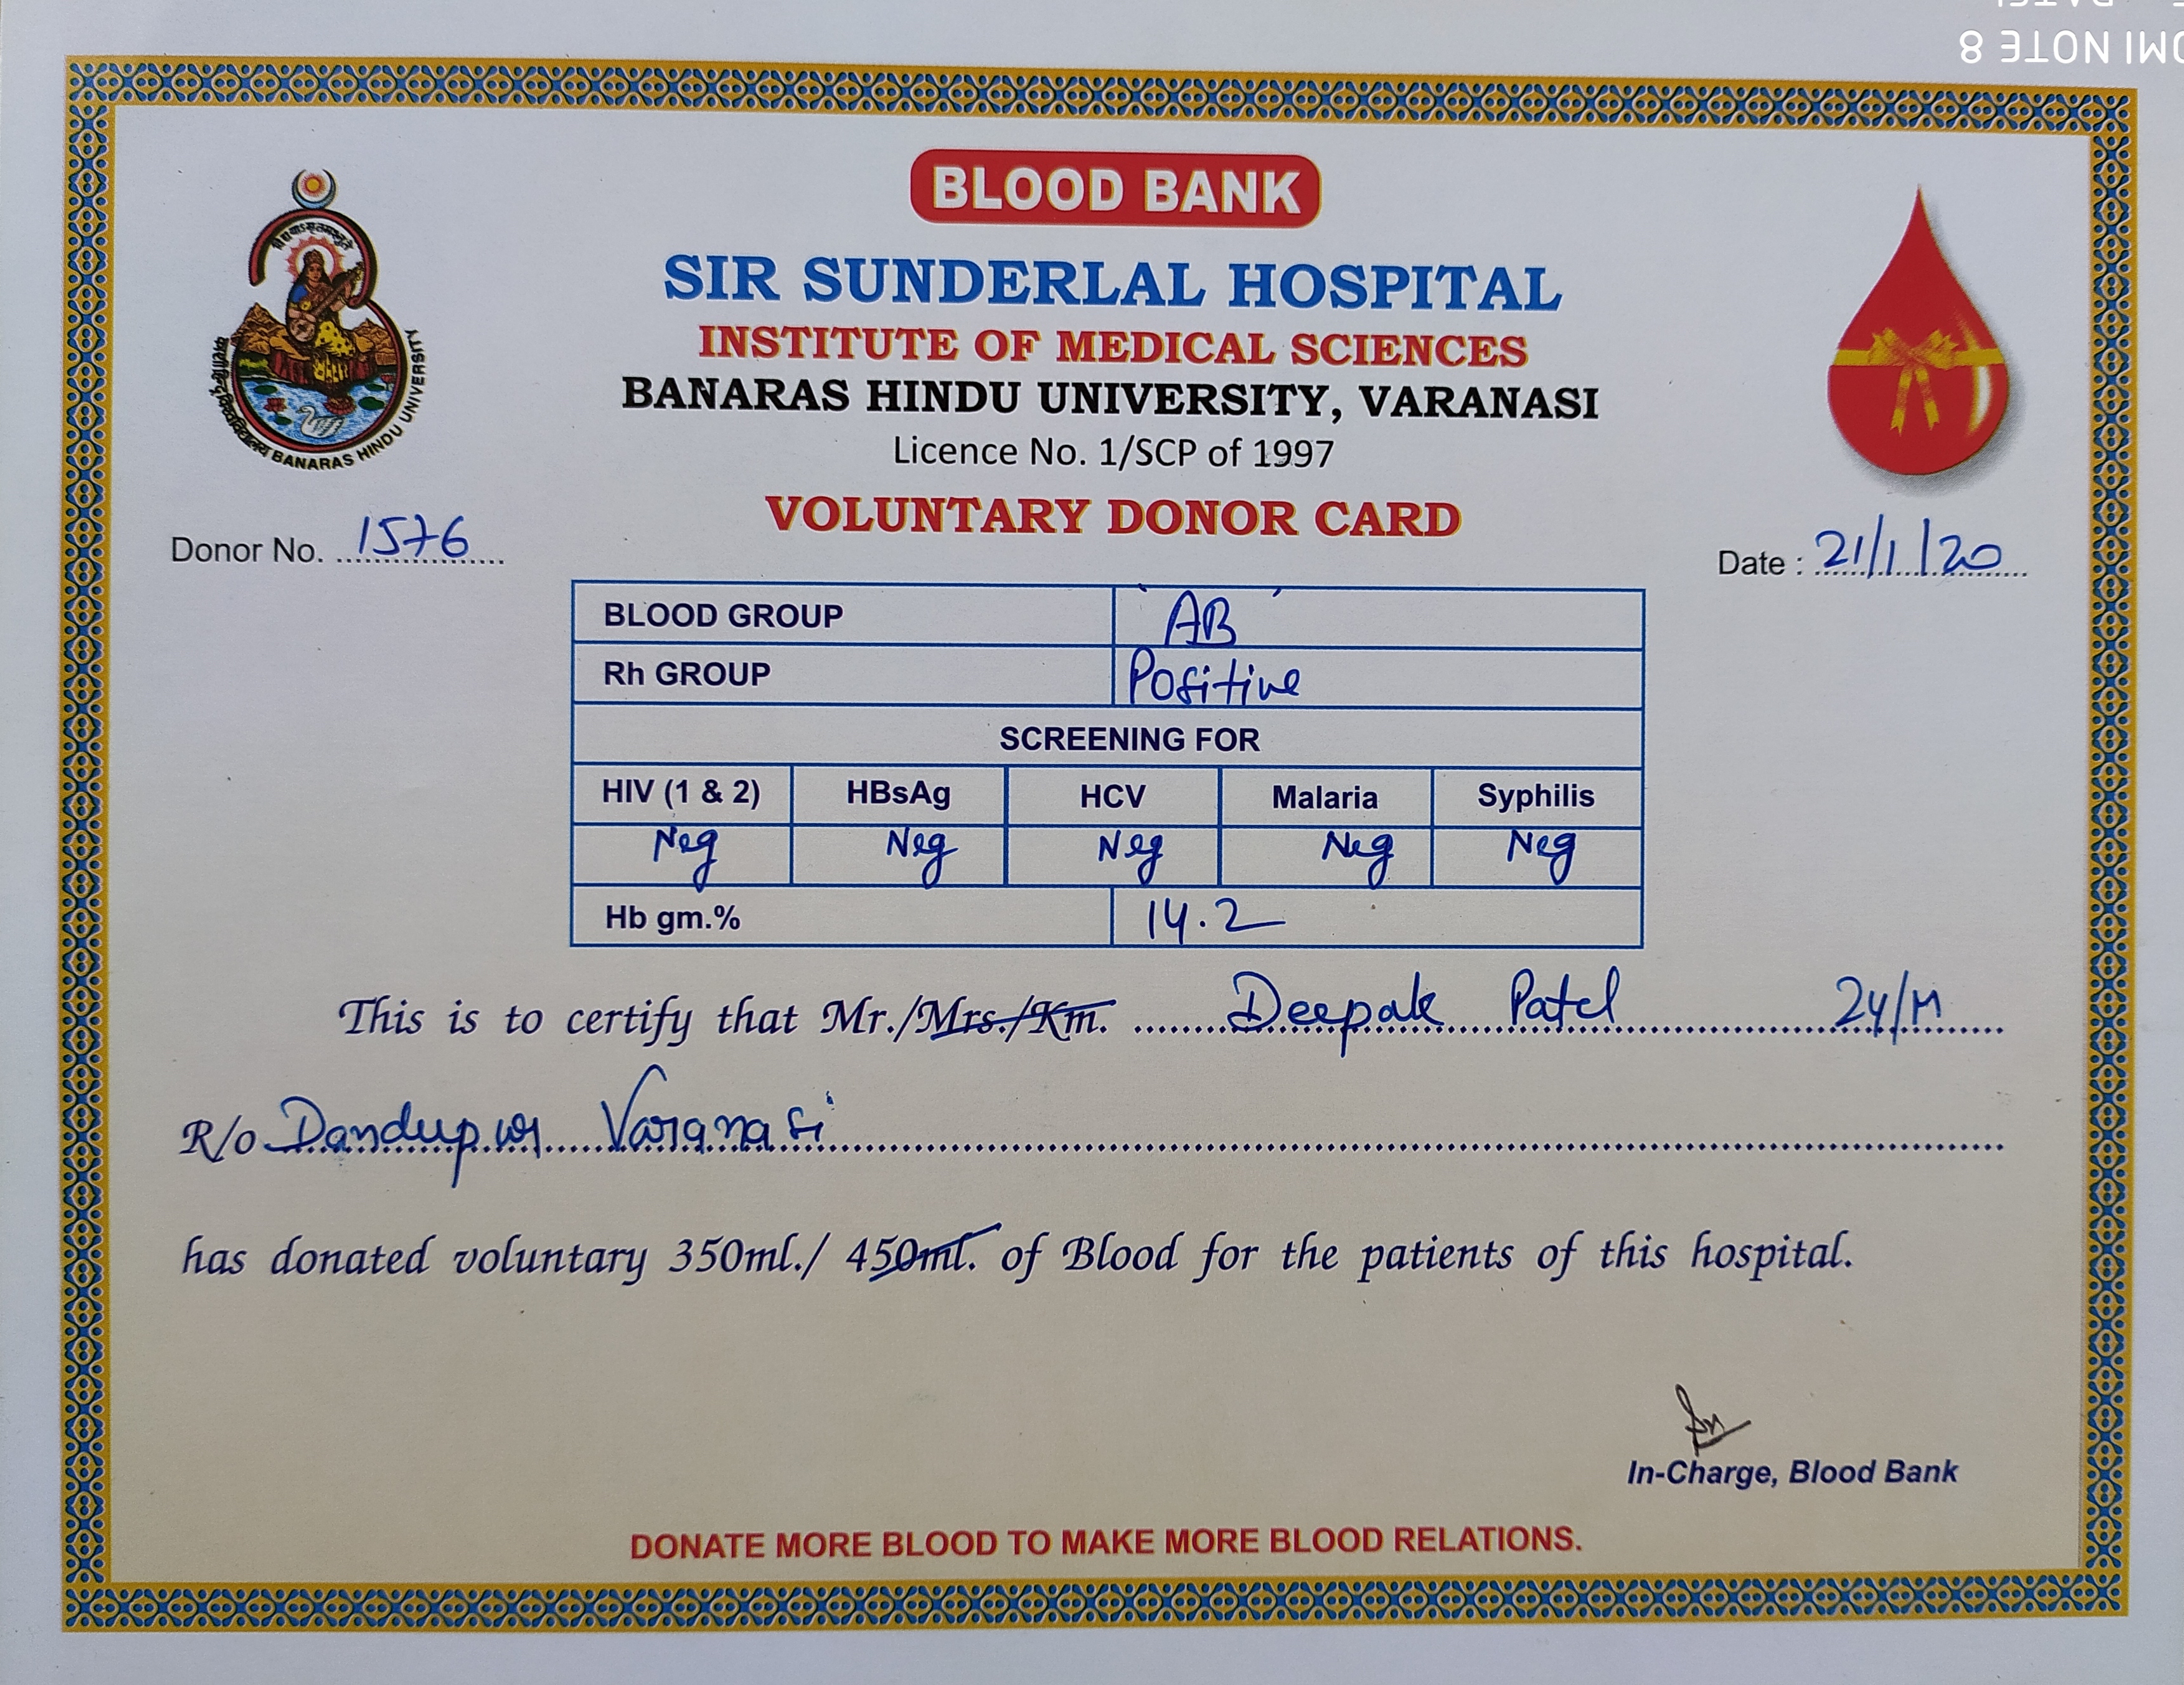 MI NOTE 8
BLOOD BANK
SIR SUNDERLAL HOSPITAL
INSTITUTE OF MEDICAL SCIENCES
BANARAS HINDU UNIVERSITY, VARANASI
Licence No. 1/SCP of 1997
BANARAS HINDU UNIVERSITY
VOLUNTARY DONOR CARD
Donor No. 1576 Date : 21/1/20
BLOOD GROUP AB
Rh GROUP Positive
SCREENING FOR
HIV (1 & 2) HBsAg HCV Malaria Syphilis
Neg Neg Neg Neg Neg
Hb gm.% 14.2
This is to certify that Mr./Mrs./Km. Deepak Patel 24/M
R/o Dandupur Varanasi
has donated voluntary 350ml./ 450ml. of Blood for the patients of this hospital.
In-Charge, Blood Bank
DONATE MORE BLOOD TO MAKE MORE BLOOD RELATIONS.